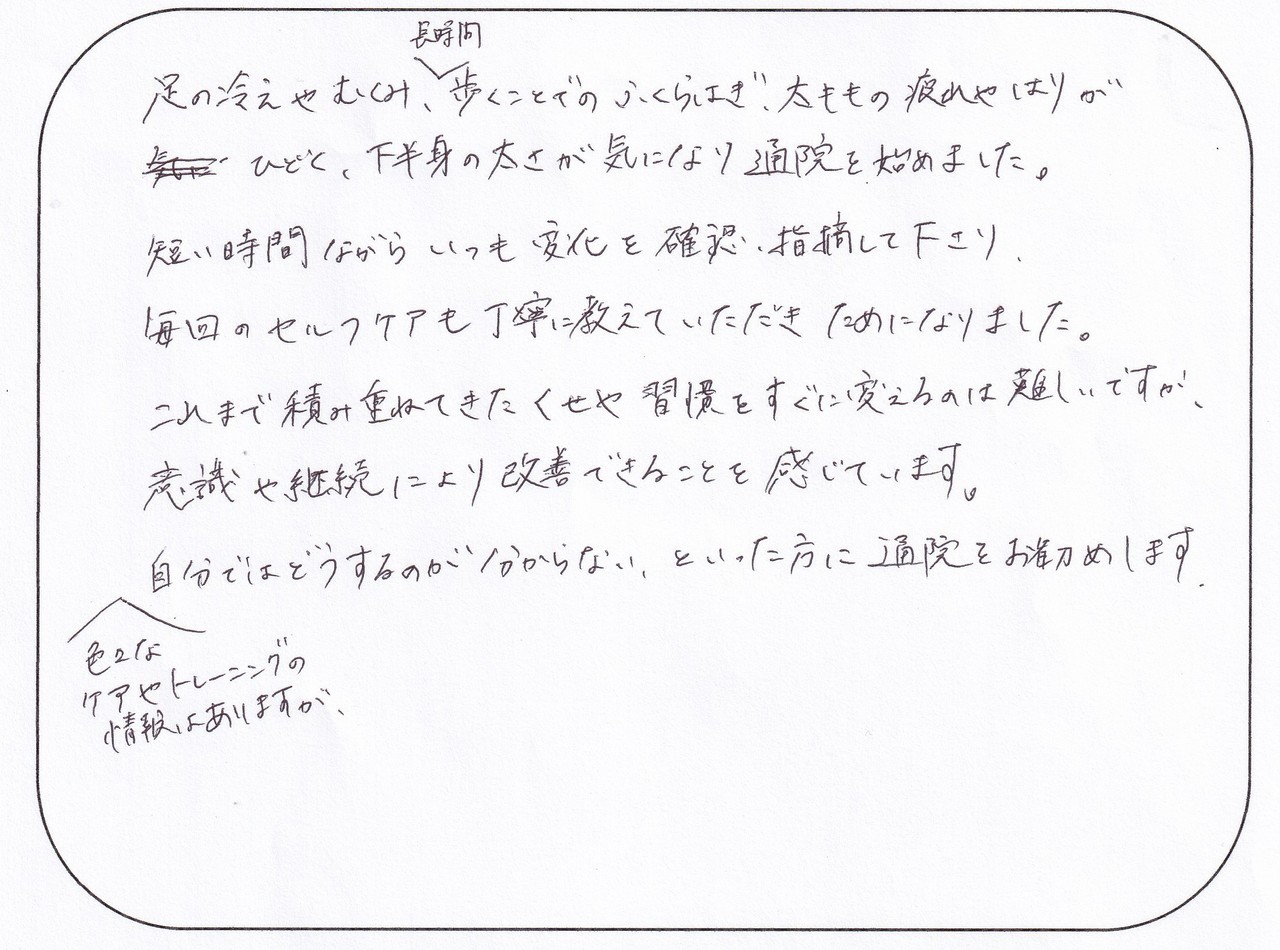 長時間
足の冷えやむくみ、歩くことでのふくらはぎ、太ももの疲れやはりが
ひどく、下半身の太さが気になり通院を始めました。
短い時間ながらいつも変化を確認、指摘して下さり、
毎回のセルフケアも丁寧に教えていただきためになりました。
これまで積み重ねてきたくせや習慣をすぐに変えるのは難しいですが、
意識や継続により改善できることを感じています。
自分ではどうするのが分からない、といった方に通院をお勧めします。
色々な
ケアやトレーニングの
情報はありますが、